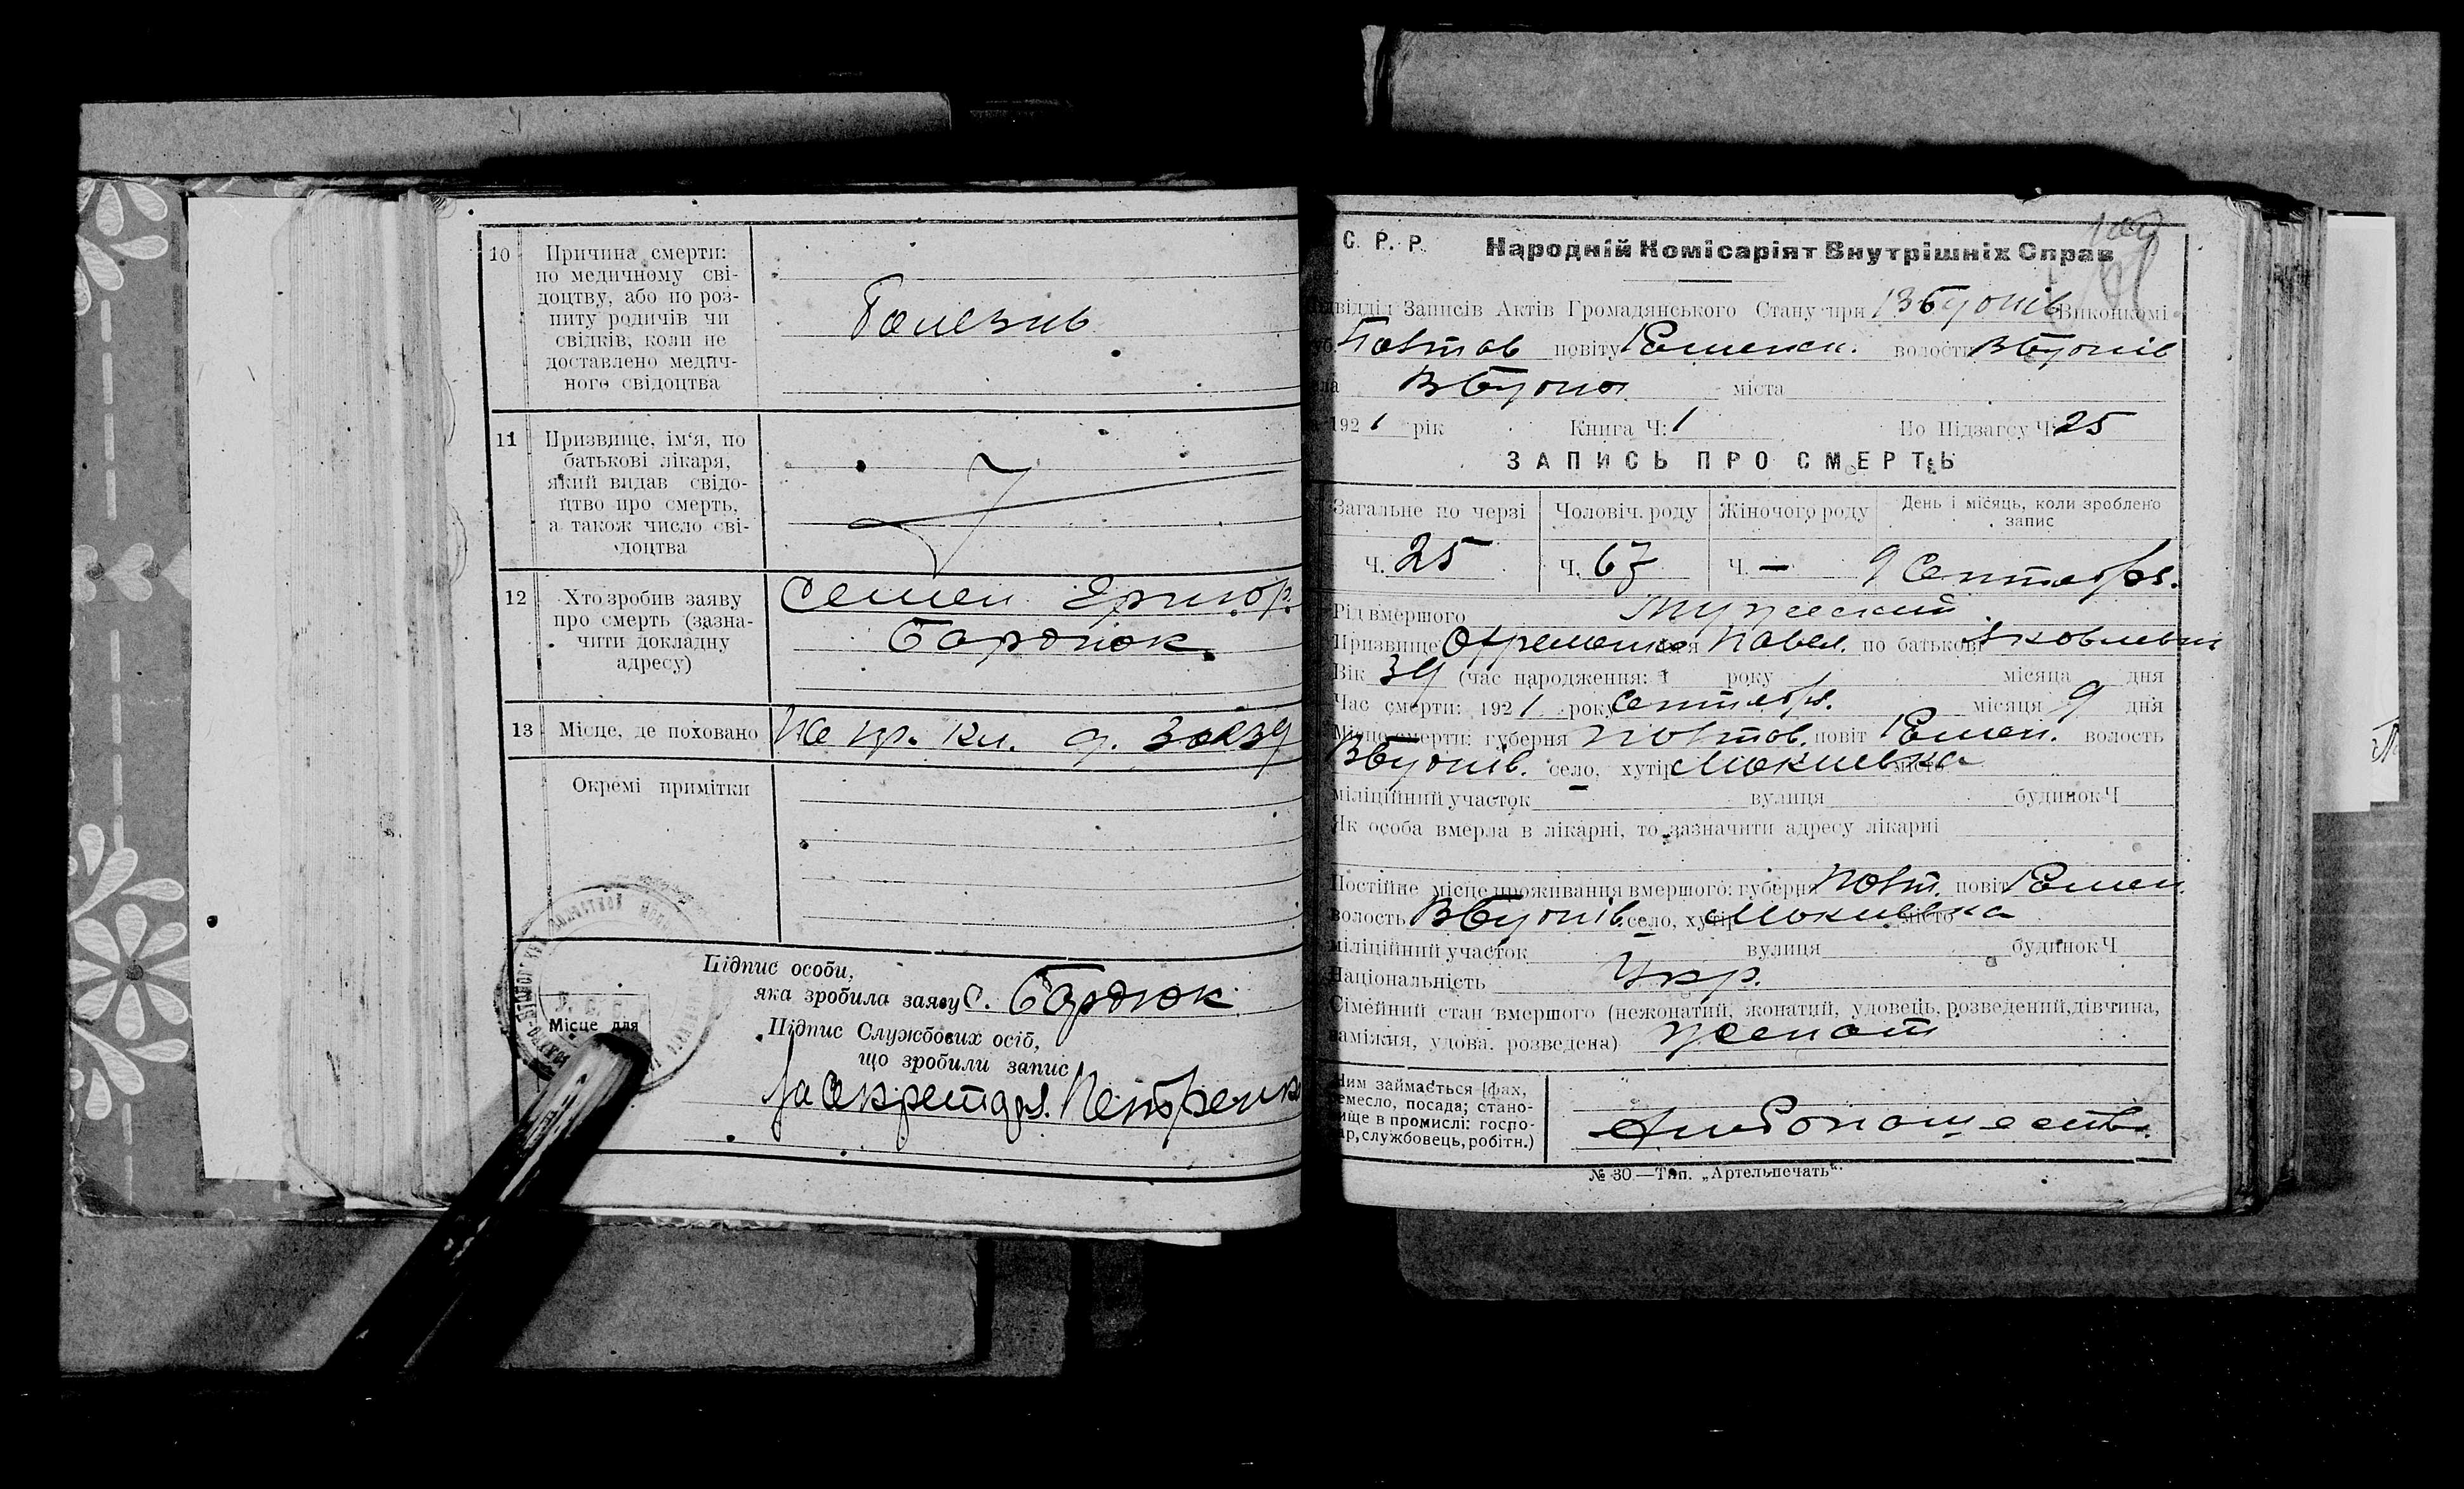 10 Причина смерти:
по медичному сві-
доцтву, або по роз-
питу родичів чи
свідків, коли не
доставлено медич-
ного свідоцтва
Болезнь
11 Призвище, ім'я, по
батькові лікаря,
який видав свідо-
цтво про смерть,
а також число сві-
доцтва
12 Хто зробив заяву
про смерть (зазна-
чити докладну
адресу)
Семен Григор.
Бардюк.
13 Місце, де поховано
На пр. кл.
Окремі примітки
Підпис особи,
яка зробила заяву С. Бардюк
Місце для
Підпис Службових осіб,
що зробили запис
за Секретаря. Петренко
С. Р. Р. Народній Комісаріят Внутрішніх Справ
Записів Актів Громадянського Стану при Виконкомі
Полтов повіту Роменск. волости
міста
192 1 рік Книга Ч: 1 По Підзагсу Ч. 25
ЗАПИСЬ ПРО СМЕРТЬ
Загальне по черзі Чоловіч. роду Жіночого роду День і місяць, коли зроблено
запис
Ч. 25 Ч. 67 Ч. — 9 Сентября.
Рід вмершого Мужеский
Призвище Павел. по батькові Яковлевич
Вік 39 (час народження: 1 року місяца дня
Час смерти: 192 1 року Сентября. місяця 9 дня
Місце смерти: губерня Полтов. повіт Ромен. волость
село, хутір Мокиевка місто
міліційний участок вулиця будинок Ч
Як особа вмерла в лікарні, то зазначити адресу лікарні
Постійне місце проживання вмершого: губерня Полт. повіт Ромен.
волость село, хутір Мокиевка місто
міліційний участок вулиця будинок Ч
Національність Укр.
Сімейний стан вмершого (нежонатий, жонатий, удовець, розведений, дівчина,
заміжня, удова. розведена) женат
Чим займається (фах,
ремесло, посада; стано-
вище в промислі: госпо-
дар, службовець, робітн.)
Хлебопашеств.
№ 30.—Тип. „Артельпечать".